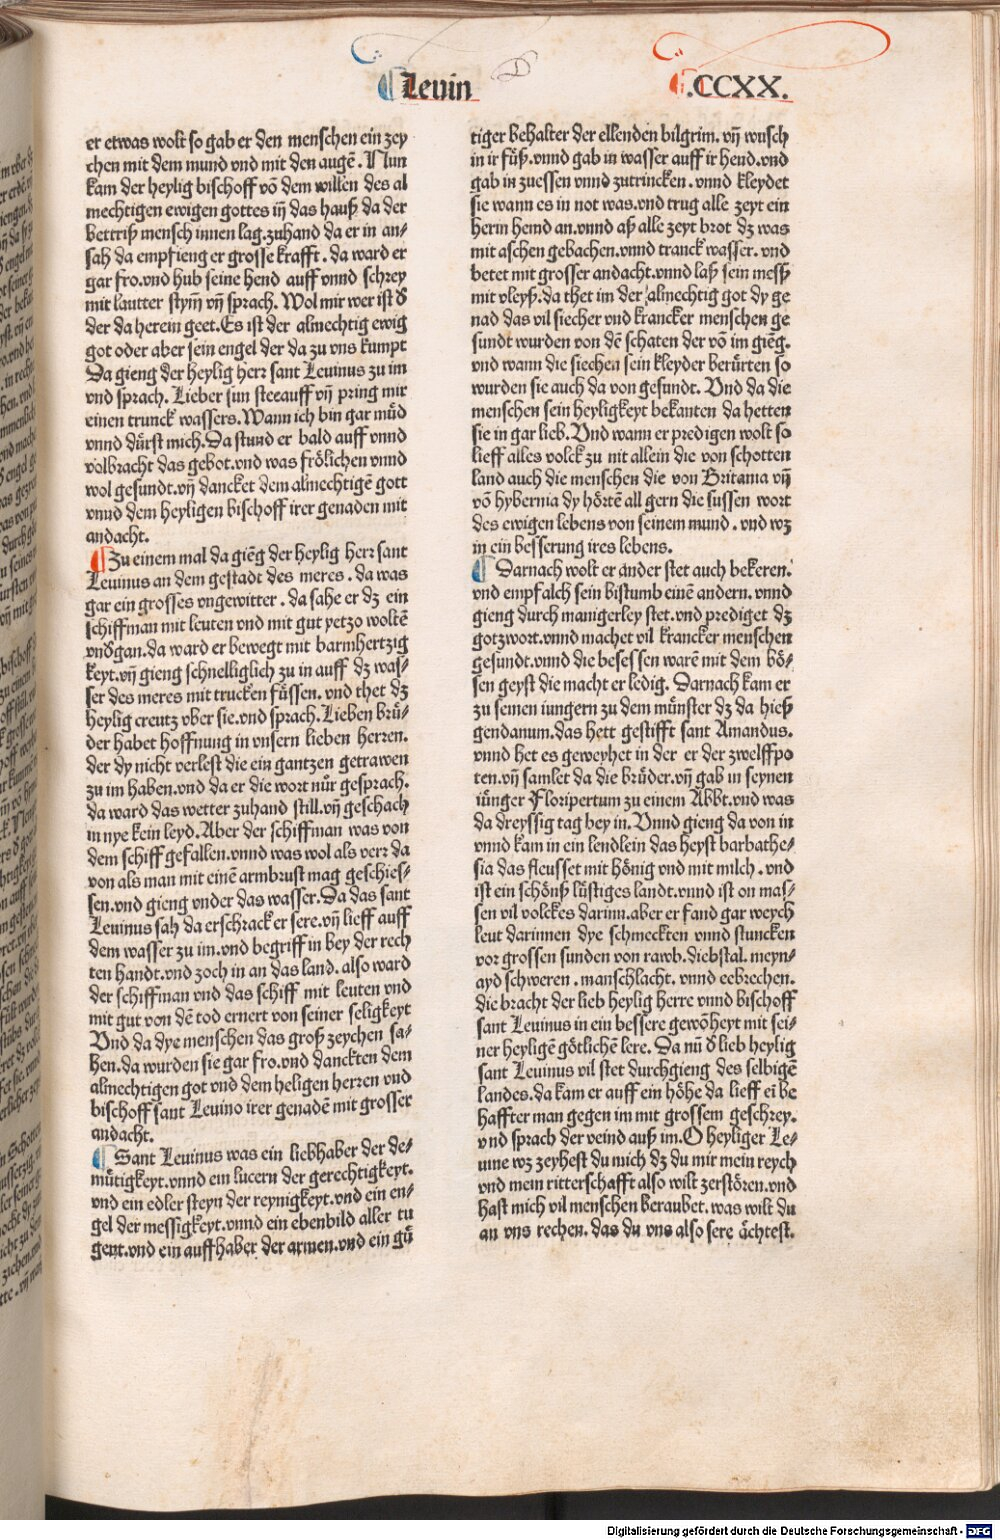 Leuin
.CCXX.
er etwas wolt so gab er den menschen ein zey
chen mit dem mund vnd mit den augē. Nun
kam der heylig bischoff vō dem willen des al
mechtigen ewigen gottes in̄ das hauß da der
bettriß mensch innen lag. zuhand da er in an⸗
sah da empfieng er grosse krafft. da ward er
gar fro. vnd hub seine hend auff vnnd schrey
mit lautter stym̄ vn̄ sprach. Wol mir wer ist d̕
der da herein geet. Es ist der almechtig ewig
got oder aber sein engel der da zu vns kumpt
Da gieng der heylig herr sant Leuinus zu im
vnd sprach. Lieber sun steeauff vn̄ pring mir
einen trunck wassers. Wann ich bin gar mu̇d
vnnd du̇rst mich. Da stund er bald auff vnnd
volbracht das gebot. vnd was frȯlichen vnnd
wol gesundt. vn̄ dancket dem almechtigē gott
vnnd dem heyligen bischoff irer genaden mit
andacht.
Zu einem mal da giēg der heylig herr sant
Leuinus an dem gestadt des meres. da was
gar ein grosses vngewitter. da sahe er dz ein
schiffman mit leuten vnd mit gut yetzo woltē
vnd̕gan. da ward er bewegt mit barmhertzig
keyt. vn̄ gieng schnelliglich zu in auff dz was⸗
ser des meres mit trucken fu̇ssen. vnd thet dz
heylig creutz vber sie. vnd sprach. Lieben bru̇⸗
der habet hoffnung in vnsern lieben herren.
der dy nicht verlest die ein gantzen getrawen
zu im haben. vnd da er die wort nu̇r gesprach.
da ward das wetter zuhand still. vn̄ geschach
in nye kein leyd. Aber der schiffman was von
dem schiff gefallen. vnnd was wol als verr da
von als man mit einē armbrust mag geschies⸗
sen. vnd gieng vnder das wasser. Da das sant
Leuinus sah da erschrack er sere. vn̄ lieff auff
dem wasser zu im. vnd begriff in bey der rech
ten handt. vnd zoch in an das land. also ward
der schiffman vnd das schiff mit leuten vnd
mit gut von dē tod ernert von seiner seligkeyt
Vnd da dye menschen das groß zeychen sa⸗
hen. da wurden sie gar fro. vnd danckten dem
almechtigen got vnd dem heligen herren vnd
bischoff sant Leuino irer genadē mit grosser
andacht.
Sant Leuinus was ein liebhaber der de⸗
mu̇tigkeyt. vnnd ein lucern der gerechtigkeyt.
vnd ein edler steyn der reynigkeyt. vnd ein en⸗
gel der messigkeyt. vnnd ein ebenbild aller tu
gent. vnd ein auffhaber der armen. vnd ein gu̇
tiger behalter der ellenden bilgrim. vn̄ wusch
in ir fu̇ß. vnnd gab in wasser auff ir hend. vnd
gab in zuessen vnnd zutrincken. vnnd kleydet
sie wann es in not was. vnd trug alle zeyt ein
herin hemd an. vnnd aß alle zeyt brot dz was
mit aschen gebachen. vnnd tranck wasser. vnd
betet mit grosser andacht. vnnd laß sein meß
mit vleyß. da thet im der almechtig got dy ge
nad das vil siecher vnd krancker menschen ge
sundt wurden von dē schaten der vō im giēg.
vnd wann die siechen sein kleyder beru̇rten so
wurden sie auch da von gesundt. Vnd da die
menschen sein heyligkeyt bekanten da hetten
sie in gar lieb. Vnd wann er predigen wolt so
lieff alles volck zu nit allein die von schotten
land auch die menschen die von Britania vn̄
vō hybernia dy hȯrtē all gern die sussen wort
des ewigen lebens von seinem mund. vnd wz
in ein besserung ires lebens.
Darnach wolt er ander stet auch bekeren.
vnd empfalch sein bistumb einē andern. vnnd
gieng durch manigerley stet. vnd prediget dz
gotzwort. vnnd machet vil krancker menschen
gesundt. vnnd die besessen warē mit dem bȯ⸗
sen geyst die macht er ledig. Darnach kam er
zu seinen iungern zu dem mu̇nster dz da hieß
gendanum. das hett gestifft sant Amandus.
vnnd het es geweyhet in der er der zwelffpo
ten. vn̄ samlet da die bru̇der. vn̄ gab in seynen
iu̇nger Floripertum zu einem Abbt. vnd was
da dreyssig tag bey in. Vnnd gieng da von in
vnnd kam in ein lendlein das heyst barbathe⸗
sia das fleusset mit hȯnig vnd mit milch. vnd
ist ein schȯnß lu̇stiges landt. vnnd ist on mas⸗
sen vil volckes darinn. aber er fand gar weych
leut darinnen dye schmeckten vnnd stuncken
vor grossen sunden von rawb. diebstal. meyn⸗
ayd schweren. manschlacht. vnnd eebrechen.
die bracht der lieb heylig herre vnnd bischoff
sant Leuinus in ein bessere gewȯheyt mit sei⸗
ner heyligē gȯtlichē lere. Da nū d̕ lieb heylig
sant Leuinus vil stet durchgieng des selbigē
landes. da kam er auff ein hȯhe da lieff eī be
haffter man gegen im mit grossem geschrey.
vnd sprach der veind auß im. O heyliger Le⸗
uine wz zeyhest du mich dz du mir mein reych
vnd mein ritterschafft also wilt zerstȯren. vnd
hast mich vil menschen beraubet. was wilt du
an vns rechen. das du vns also sere ȧchtest.
Digitalisierung gefördert durch die Deutsche Forschungsgemeinschaft - DFG